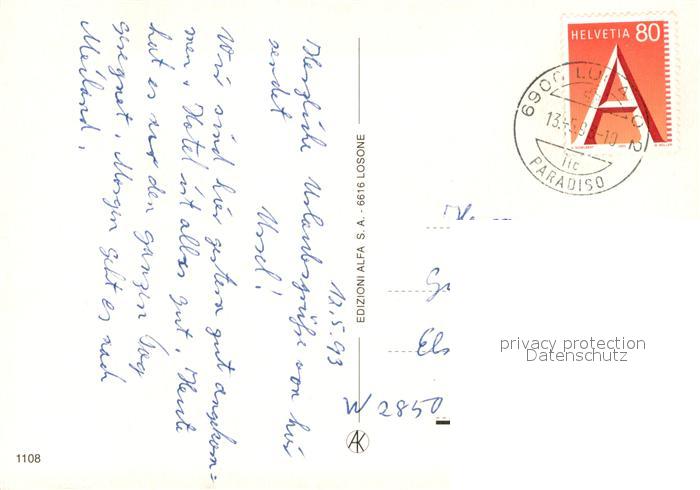 12.5.93
Herzliche Urlaubsgrüße von hier
sendet Ursel!
Wir sind hier gestern gut angekom=
men. Hotel ist alles gut. Heute
hat es nur den ganzen Tag
geregnet. Morgen geht es nach
Meiland.
1108
EDIZIONI ALFA S. A. - 6616 LOSONE
AK
HELVETIA 80
A
6900 LUGANO 2
PARADISO
W 2850
Els
privacy protection
Datenschutz